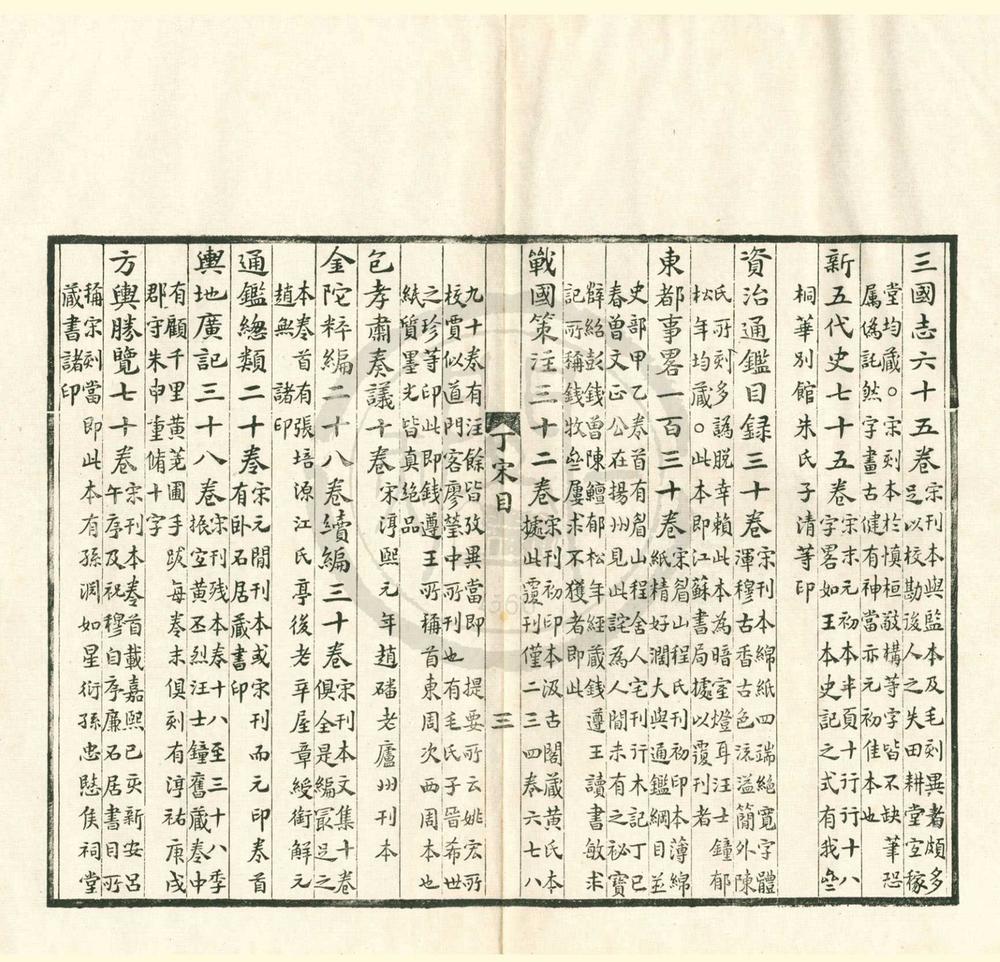 三國志六十五卷宋刊本與監本及毛刻異者頗多
足以校勘後人之失田耕堂宜稼
堂均藏。宋刻本於慎桓敬構等字皆不缺筆恐
属偽託然字畫古健有神當亦元初佳本也
新五代史七十五卷宋末元初本半頁十行行十八
字畧如王本史記之式有我
桐華別館朱氏子清等印
資治通鑑目録三十卷宋刊本綿紙四端絕寬字體
渾穆古香古色流溢簡外陳
氏所刻多譌脱幸賴此本為暗室燈耳汪士鐘郁
松年均藏。此本即江蘇書局據以覆刊者
東都事畧一百三十卷宋眉山程氏刊初印本薄綿
紙精好濶大與通鑑綱目並
史部甲乙卷首有眉山程舍人宅刊行木記丁巳
春曾文正公在揚州見此詫為人間未有之祕寶
辥紹彭錢曾陳鱣郁松年經藏錢遵王讀書敏求
記所稱錢牧屢求不獲者即此
戰國策注三十二卷宋刊初印本汲古閣藏黄氏本
據此覆刊僅二三四卷六七八
丁宋目 三
九十卷有注餘皆攷異當即提要所云姚宏所
校賈似道門客廖瑩中所刊也有毛氏子晉希世
之珍等印此即錢遵王所稱首東周次西周本也
紙質墨光皆真絕品
包孝肅奏議十卷宋淳熙元年趙磻老廬州刊本
金陀粹編二十八卷續編三十卷宋刊本文集十卷
俱全是編冣足之
本卷首有張培源江氏亭後老章綬銜解元
趙無諸印
通鑑總類二十卷宋元間刊本或宋刊而元印卷首
有卧石居藏書印
輿地廣記三十八卷宋刊残本存十八至三十八季
振宜黄丕烈汪士鐘舊藏卷中
有顧千里黄蕘圃手跋每卷末俱刻有淳祐庚戌
郡守朱申重脩十字
方輿勝覽七十卷宋刊本卷首載嘉熙己亥新安吕
午序及祝穆自序廉石居書目所
稱宋刻當即此本有孫淵如星衍孫忠愍侯祠堂
藏書諸印